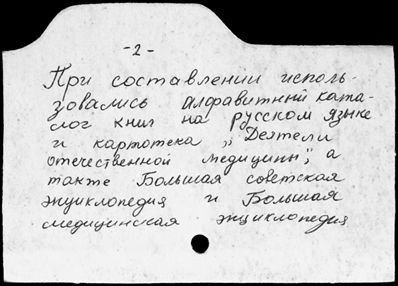 -2-
При составлении исполь-
зовались алфавитный ката-
лог книг на русском языке
и картотека „Деятели
отечественной медицины", а
также Большая советская
энциклопедия и Большая
медицинская энциклопедия